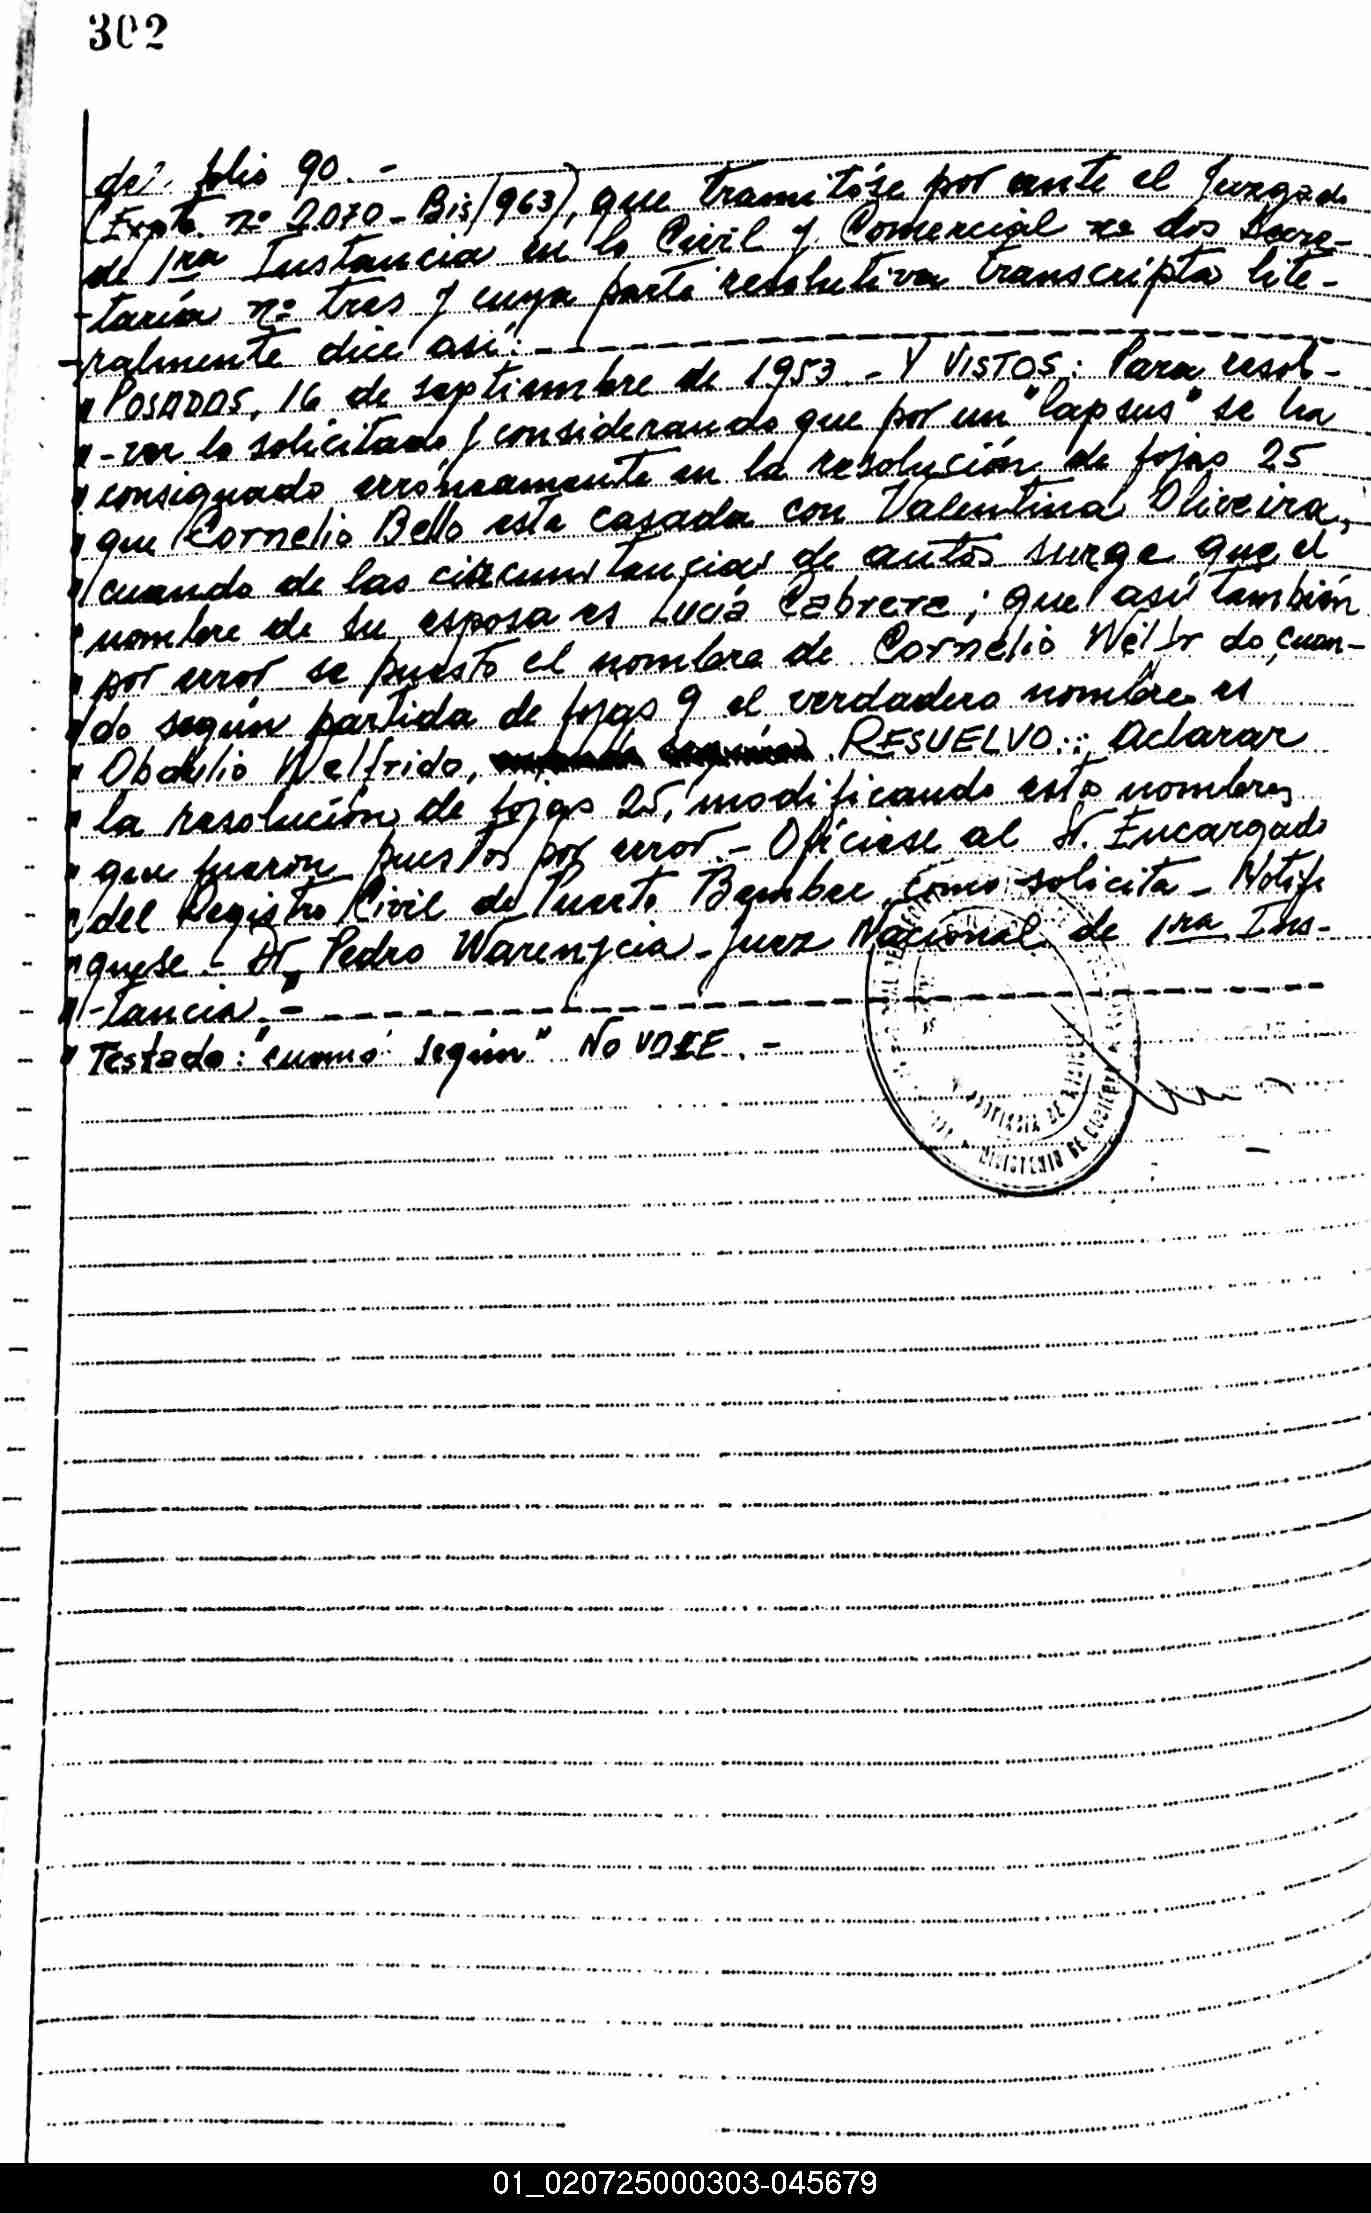 302
del folio 90.-
(Expte. nº 2.070-Bis/963), que tramitóse por ante el Juzgado
de 1ra Instancia en lo Civil y Comercial nº dos Secre-
-taría nº tres y cuya parte resolutiva transcripta lite-
-ralmente dice así:
" POSADAS, 16 de septiembre de 1953.- Y VISTOS: Para resol-
"-ver lo solicitado y considerando que por un "lapsus" se ha
" consignado erróneamente en la resolución de fojas 25
" que Cornelio Bello esta casada con Valentina Oliveira,
" cuando de las circunstancias de autos surge que el
" nombre de su esposa es Lucía Cabrera; que así también
" por error se puesto el nombre de Cornelio Welfrido, cuan-
" do según partida de fojas 9 el verdadero nombre es
" Obdulio Welfrido, RESUELVO: Aclarar
" la resolución de fojas 25, modificando estos nombres
" que fueron puestos por error.- Ofíciese al Sr. Encargado
" del Registro Civil de Puerto Bemberg como solicita- Notifí
" quese.- Dr. Pedro Warenycia- Juez Nacional de 1ra Ins-
"-tancia.-
" Testado: "cuando según" No VALE.-
PROVINCIA DE MISIONES
MINISTERIO DE GOBIERNO
01_020725000303-045679